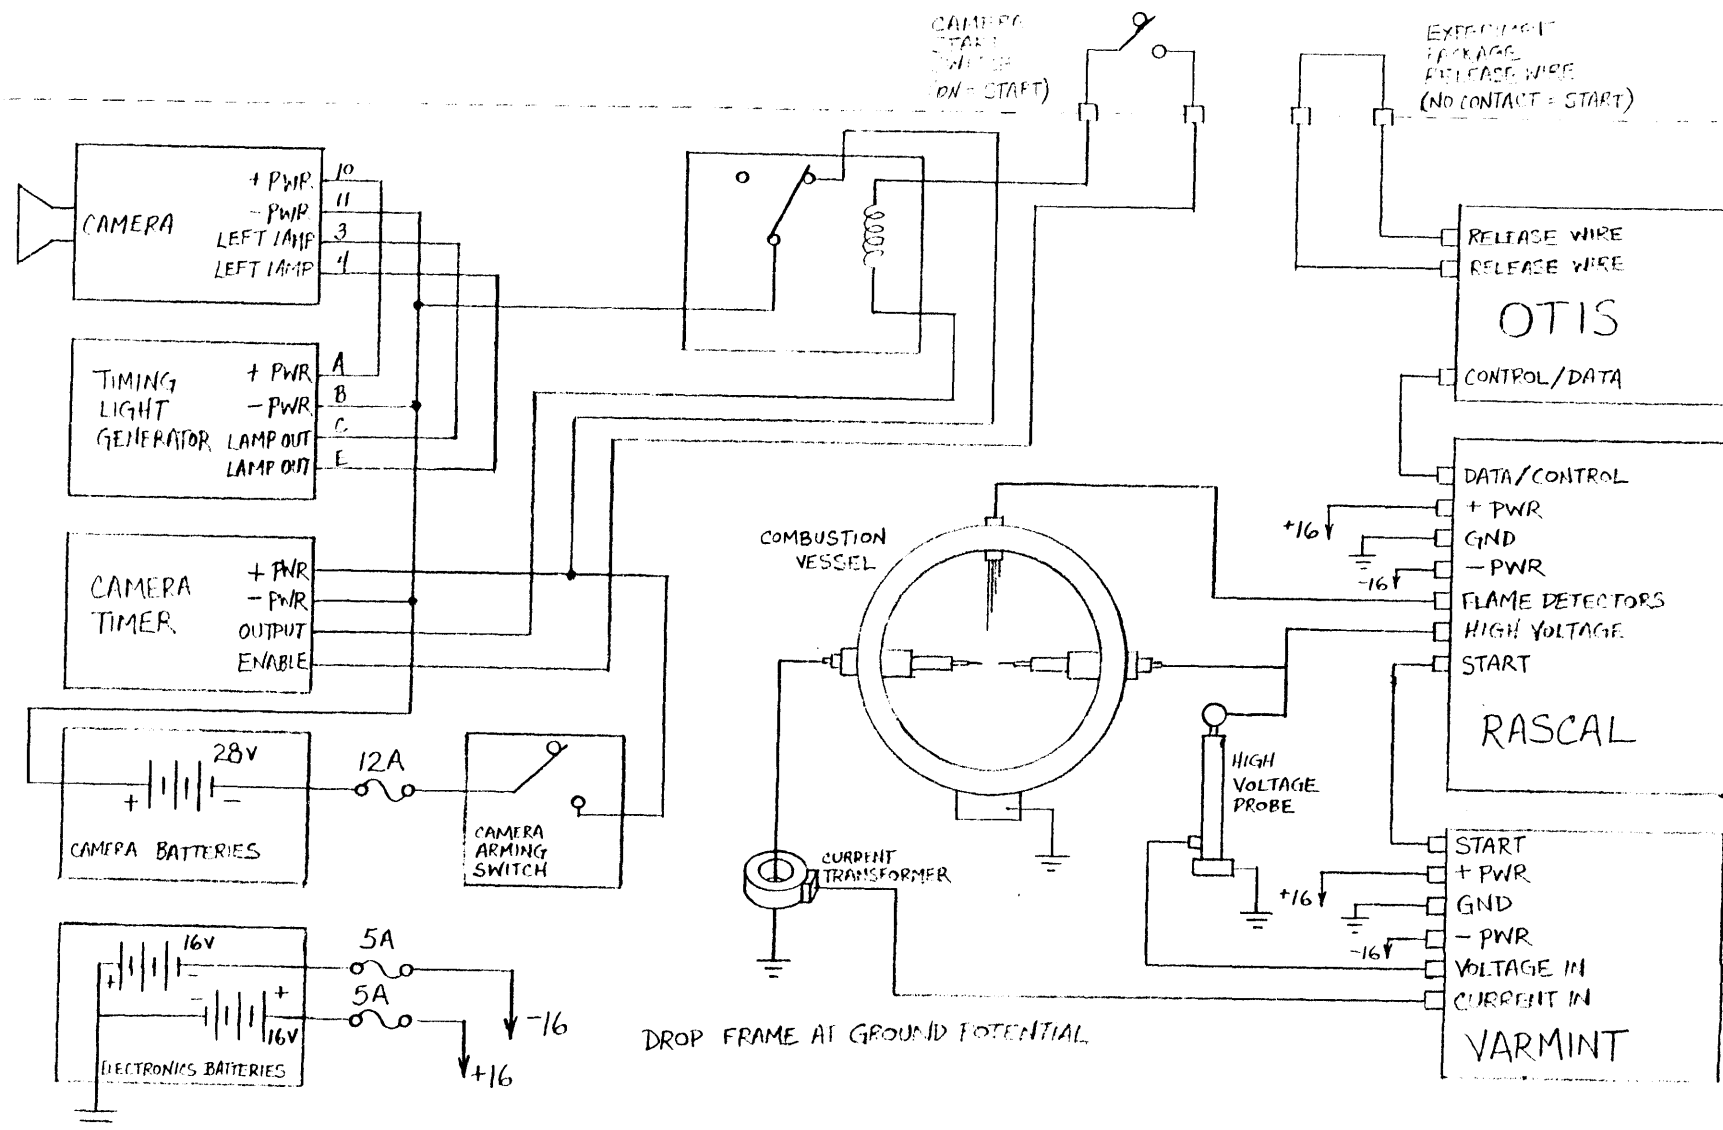 CAMERA
START
SWITCH
(ON = START)
EXPERIMENT
PACKAGE
RELEASE WIRE
(NO CONTACT = START)
CAMERA
+ PWR
10
- PWR
11
LEFT LAMP
3
LEFT LAMP
4
TIMING
LIGHT
GENERATOR
+ PWR
A
- PWR
B
LAMP OUT
C
LAMP OUT
E
CAMERA
TIMER
+ PWR
- PWR
OUTPUT
ENABLE
28V
+
-
CAMERA BATTERIES
12A
CAMERA
ARMING
SWITCH
16V
+
-
-
+
16V
ELECTRONICS BATTERIES
5A
5A
-16
+16
COMBUSTION
VESSEL
CURRENT
TRANSFORMER
HIGH
VOLTAGE
PROBE
DROP FRAME AT GROUND POTENTIAL
RELEASE WIRE
RELEASE WIRE
OTIS
CONTROL/DATA
DATA/CONTROL
+ PWR
+16
GND
- PWR
-16
FLAME DETECTORS
HIGH VOLTAGE
START
RASCAL
START
+ PWR
+16
GND
- PWR
-16
VOLTAGE IN
CURRENT IN
VARMINT